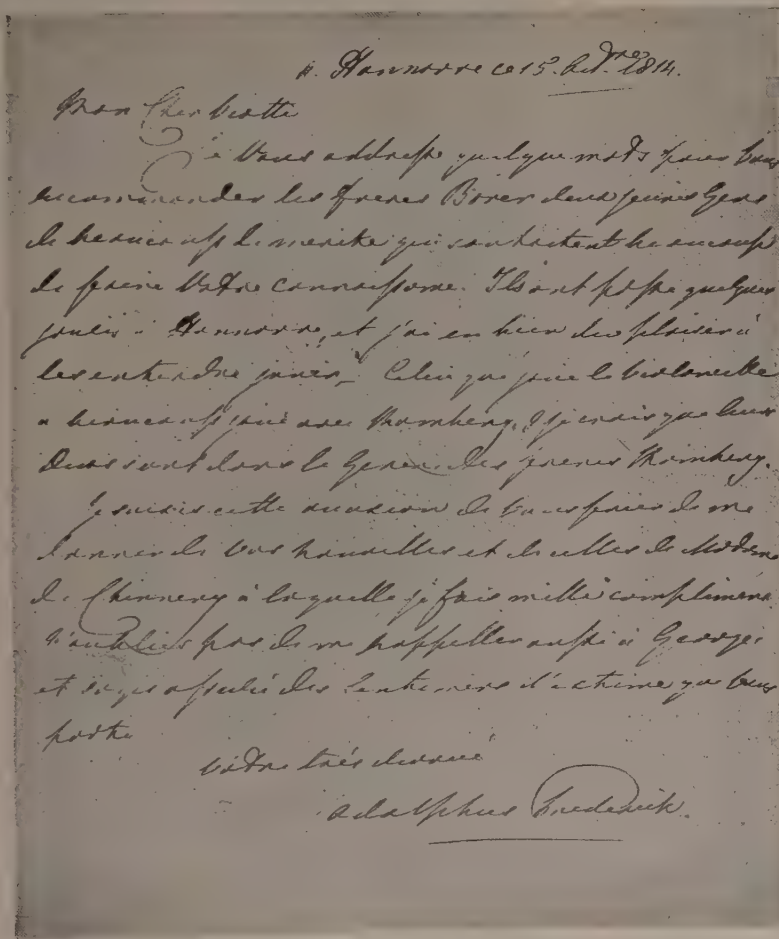 à Hannovre ce 15. Oct.bre 1814.
Mon Cher Viotti
Je Vous addresse quelque mots pour Vous
recommander les freres Borer deux jeunes Gens
de beaucoup de merite qui souhaitent beaucoup
de faire Votre connaissance. Ils ont passé quelques
jours à Hannovre, et j'ai eu bien du plaisir à
les entendre jouer. Celui qui joue le Violoncelle
a beaucoup joué avec Romberg, & je crois que leurs
Duos sont dans le Genre des freres Romberg.
Je saisis cette occasion de Vous prier de me
donner de Vos nouvelles et de celles de Madame
de Chinnery à laquelle je fais mille complimens
N'oubliés pas de me rappeller aussi à George
et soyés assuré des Sentimens d'estime que Vous
porte
Votre très devoué
Adolphus Frederick.